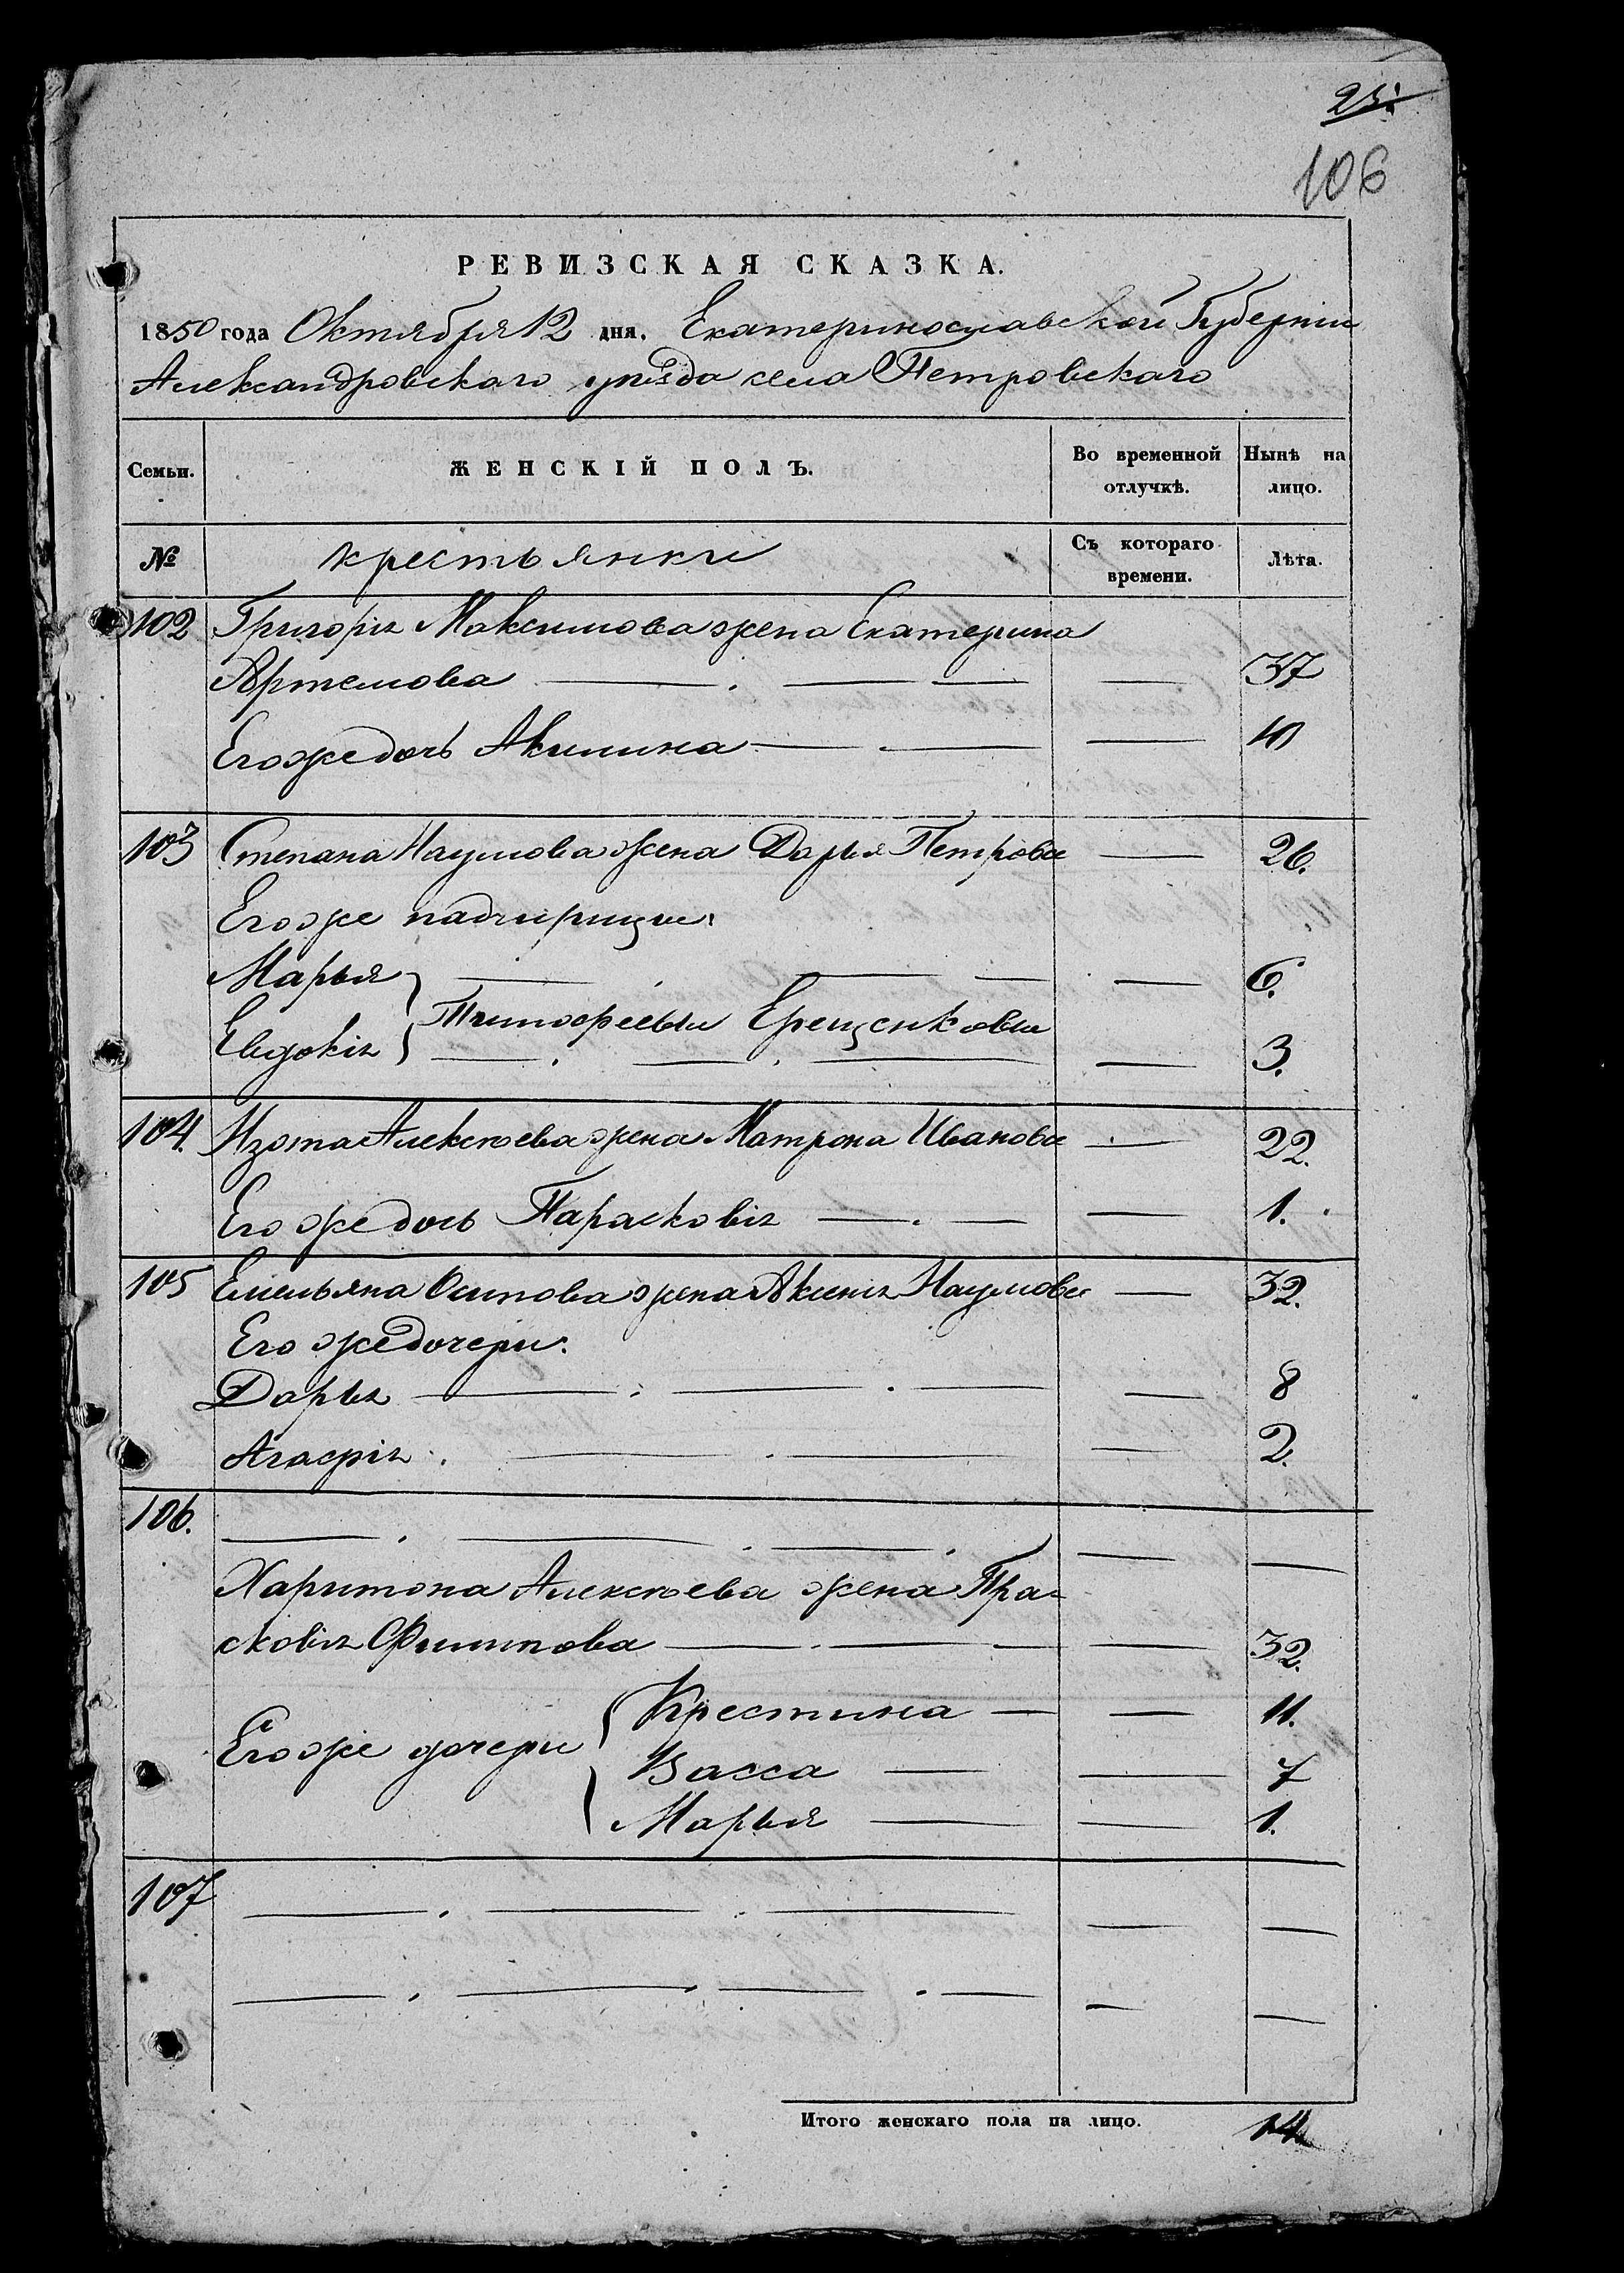 106
РЕВИЗСКАЯ СКАЗКА.
1850 года Октября 12 дня. Екатеринославской Губернии
Александровскаго уѣзда села Петровскаго
Семьи. ЖЕНСКІЙ ПОЛЪ. Во временной отлучкѣ. Нынѣ на лицо.
№ крестьянки Съ котораго времени. Лѣта.
102 Григорія Максимова жена Екатерина
Артемова — 37
Егоже дочь Акилина — 10
103 Степана Наумова жена Дарья Петрова — 26.
Егоже падчирицы:
Марья — 6.
Тимофеевы Ерещенковы
Евдокія — 3.
104. Изота Алексѣева жена Матрона Иванова — 22.
Егоже дочь Парасковія — 1.
105 Емельяна Осипова жена Аксенія Наумова — 32.
Егоже дочери:
Дарья — 8
Агафія — 2.
106. — — —
Харитона Алексѣева жена Пра-
сковія Филипова — 32.
Егоже дочери
Крестина — 11.
Васса — 7
Марья — 1.
107 — — —
— — —
Итого женскаго пола на лицо. 14